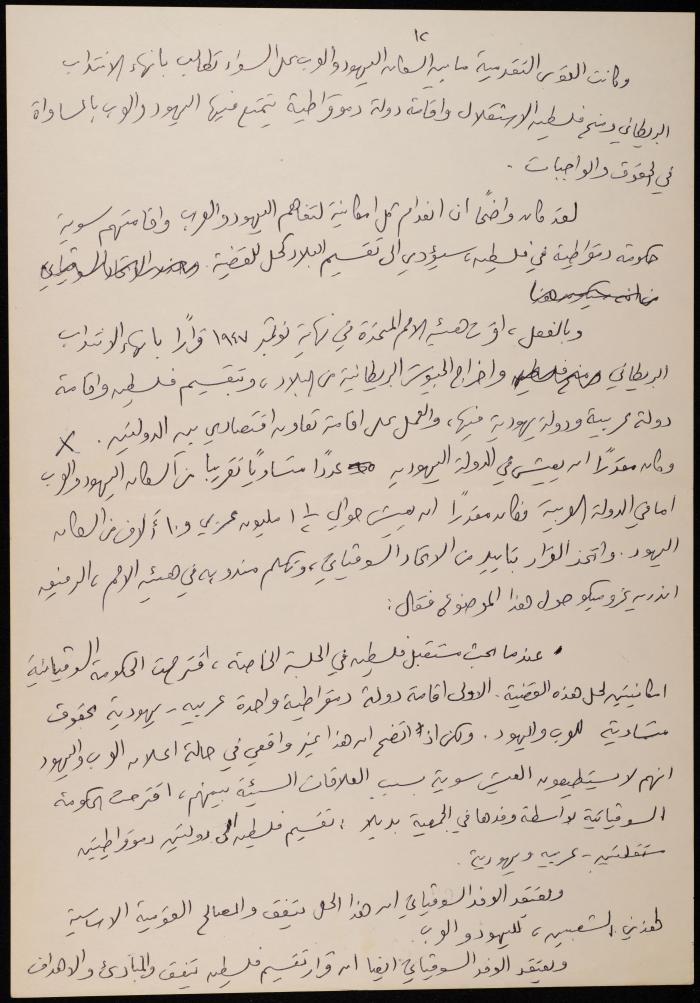 ١٢
وكانت القوى التقدمية ما بين السكان اليهود والعرب على السواء تطالب بانهاء الانتداب
البريطاني ومنح فلسطين الاستقلال واقامة دولة دموقراطية يتمتع فيها اليهود والعرب بالمساواة
في الحقوق والواجبات .
لقد كان واضحًا ان انعدام كل امكانية لتفاهم اليهود والعرب واقامتهم سوية
حكومة دمقراطية في فلسطين، سيؤدي الى تقسيم البلاد كحل للقضية. وعند الاتحاد السوڤياتي
وبالفعل، اقرت هيئة الامم المتحدة في نهاية نوڤمبر ١٩٤٧ قرارًا بانهاء الانتداب
البريطاني ومنح فلسطين واخراج الجيوش البريطانية من البلاد، وبتقسيم فلسطين واقامة
دولة عربية ودولة يهودية فيها، والعمل على اقامة تعاون اقتصادي بين الدولتين. X
وكان مقدرًا ان يعيش في الدولة اليهودية عددًا متساويًا تقريبا من السكان اليهود والعرب
اما في الدولة العربية فكان مقدرًا ان يعيش حوالي مليون عربي و١٠ آلاف من السكان
اليهود. واتخذ القرار بتاييد من الاتحاد السوڤياتي، وتكلم مندوبه في هيئة الامم، الرفيق
اندريه غروميكو حول هذا الموضوع فقال:
عندما بحث مستقبل فلسطين في الجلسة الخاصة، اقترحت الحكومة السوڤياتية
امكانيتين لحل هذه القضية. الاولى اقامة دولة دمقراطية واحدة عربية - يهودية بحقوق
متساوية للعرب واليهود. ولكن اذا اتضح ان هذا غير واقعي في حالة اعلان العرب واليهود
انهم لا يستطيعون العيش سوية بسبب العلاقات السيئة بينهم، اقترحت الحكومة
السوڤياتية بواسطة وفدها في الجمعية بديلا: تقسيم فلسطين الى دولتين دموقراطيتين
مستقلتين - عربية ويهودية.
ويعتقد الوفد السوڤياتي ان هذا الحل يتفق والمصالح القومية الاساسية
لهذين الشعبين، لليهود والعرب.
ويعتقد الوفد السوڤياتي ايضا ان قرار تقسيم فلسطين يتفق والمبادئ والاهداف